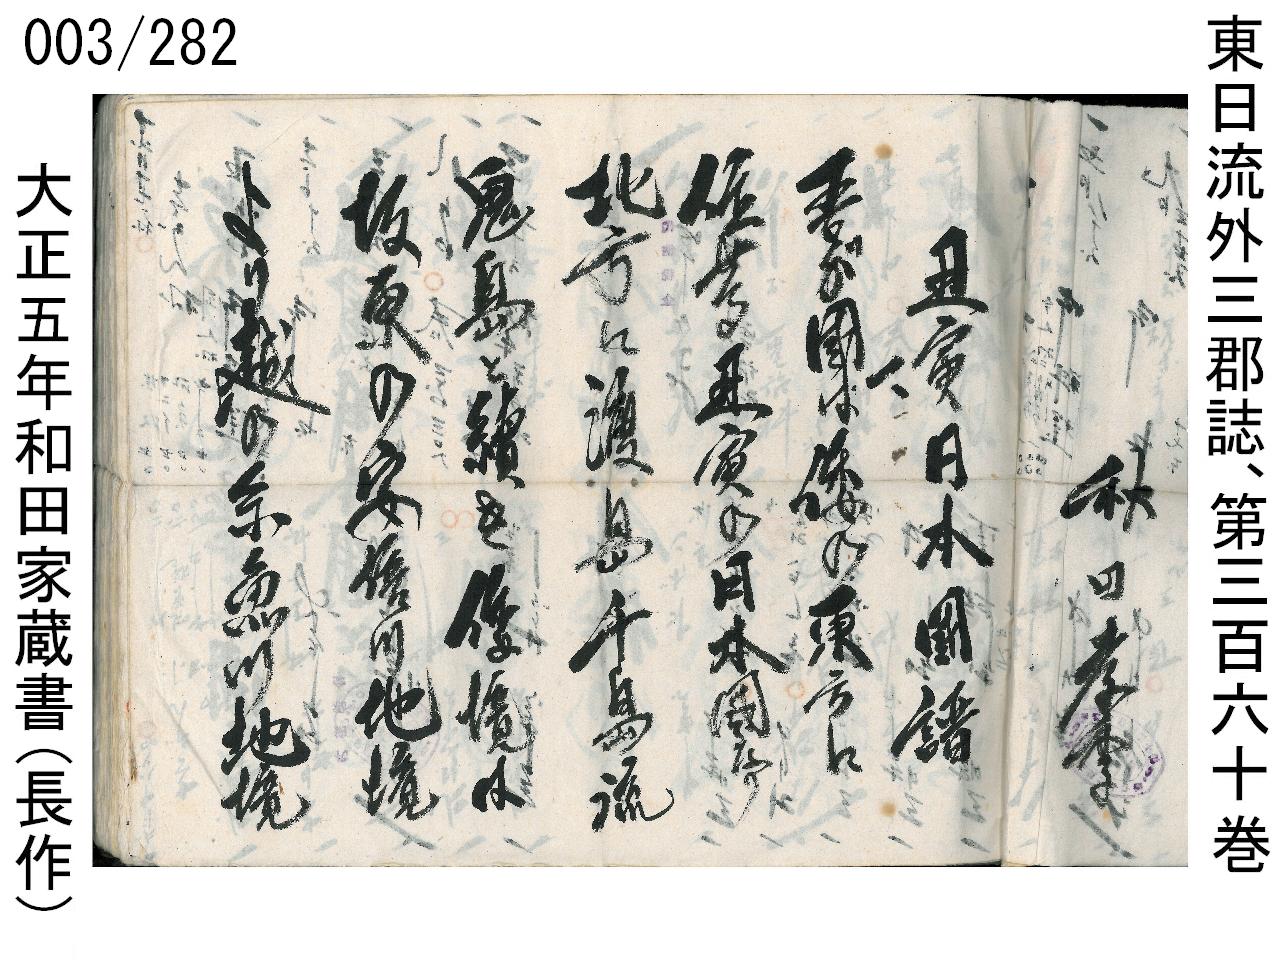 003/282
東日流外三郡誌、第三百六十巻
秋田孝季
丑寅日本國諸
吾が國は倭の東方に
位せる丑寅の日本國
北方に渡島千島流
鬼島と續き倭境は
坂東の安倍川地境
より越の糸魚川地境
大正五年和田家蔵書（長作）